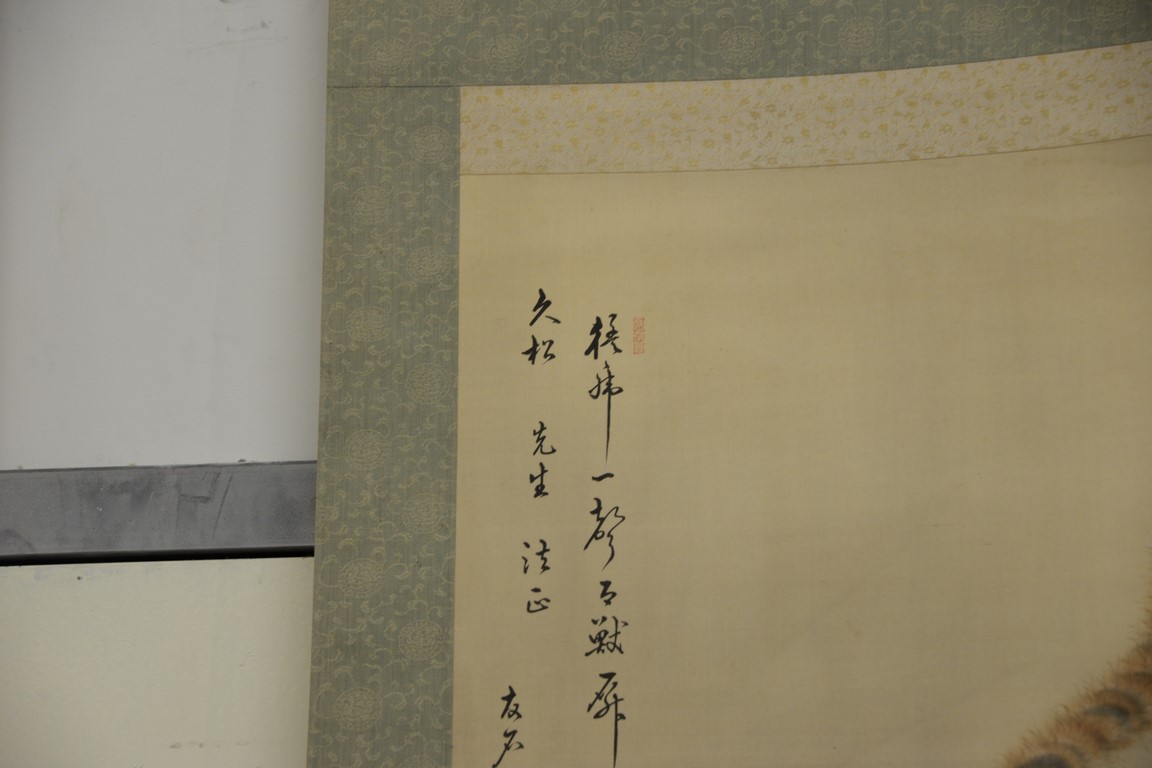 猛虎一聲百獸辟
久松 先生 法正
友石